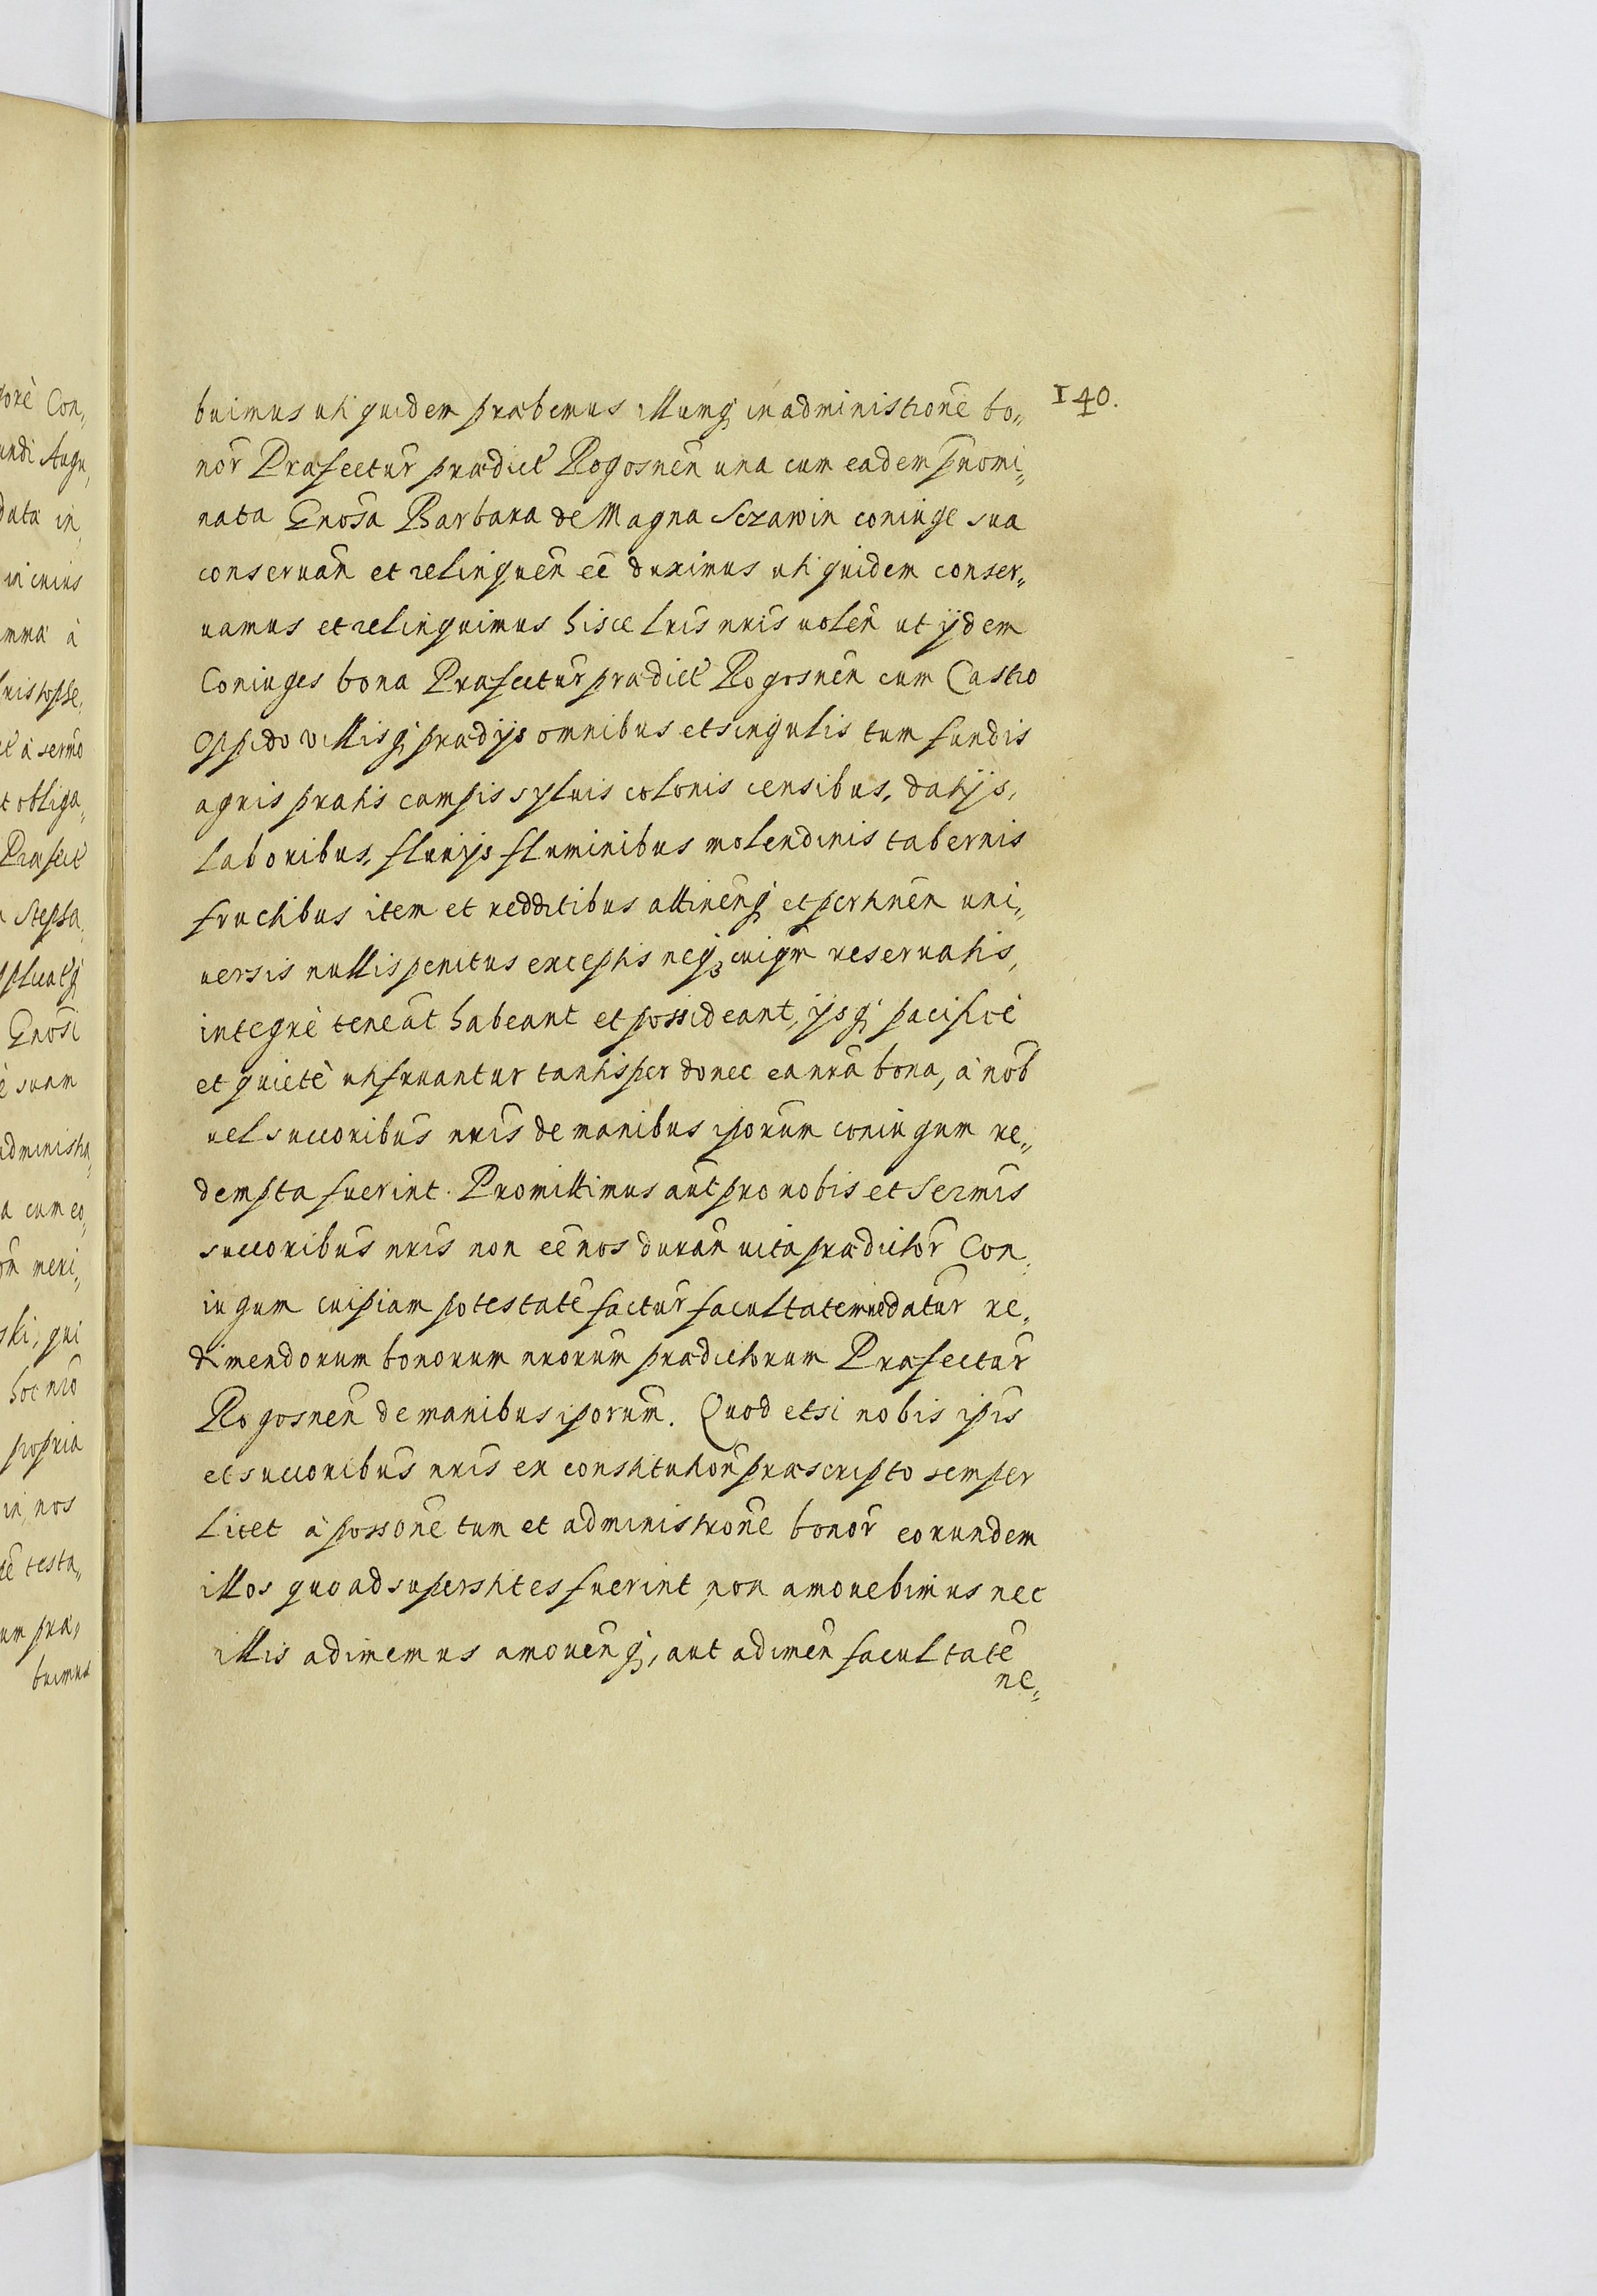 140.
buimus uti quidem præbemus illumq; in administrone bo„
nor̄ Præfectur̄ prædict̄ Rogosnen̄ una cum eadem p̄nomi„
nata Gn̄osa Barbara de Magna Sczawin coniuge sua
conseruan̄ et relinquen̄ ee̅ duximus uti quidem conser„
uamus et relinquimus hisce lr̄is nr̄is uolen̄ ut ijdem
Coniuges bona Præfectur̄ prædict̄ Rogosnen̄ cum Castro
Oppido villisq; prædijs omnibus et singulis tum fundis
agris pratis campis syluis colonis censibus, datijs,
laboribus, fluvijs fluminibus molendinis tabernis
fructibus item et redditibus attinen̄q; et pertinen̄ uni„
uersis nullis penitus exceptis neq; cuiqm̄ reseruatis,
integrè teneāt habeant et possideant, ijsq; pacificè
et quietè utifruantur tantisper donec ea nr̄a bona, à nob̄
uel succoribus̄ nr̄is de manibus ip̄orum coniugum re„
dempta fuerint. Promittimus aut̄ pro nobis et Serm̄is
succoribus̄ nr̄is non ee̅ nos duran̄ uita prædictor̄ Con„
iugum cuipiam potestatē factur̄ facultatemue datur̄ re„
dimendorum bonorum nr̄orum prædictorum Præfectur̄
Rogosnen̄ de manibus ip̄orum. Quod etsi nobis ip̄is
et succoribus̄ nr̄is ex constitution̄ præscripto semper
licet à possōne tum et administrōne bonor̄ eorundem
illos quoad superstites fuerint non amouebimus nec
illis adimemus amouen̄q;, aut adimen̄ facultatē
ne„